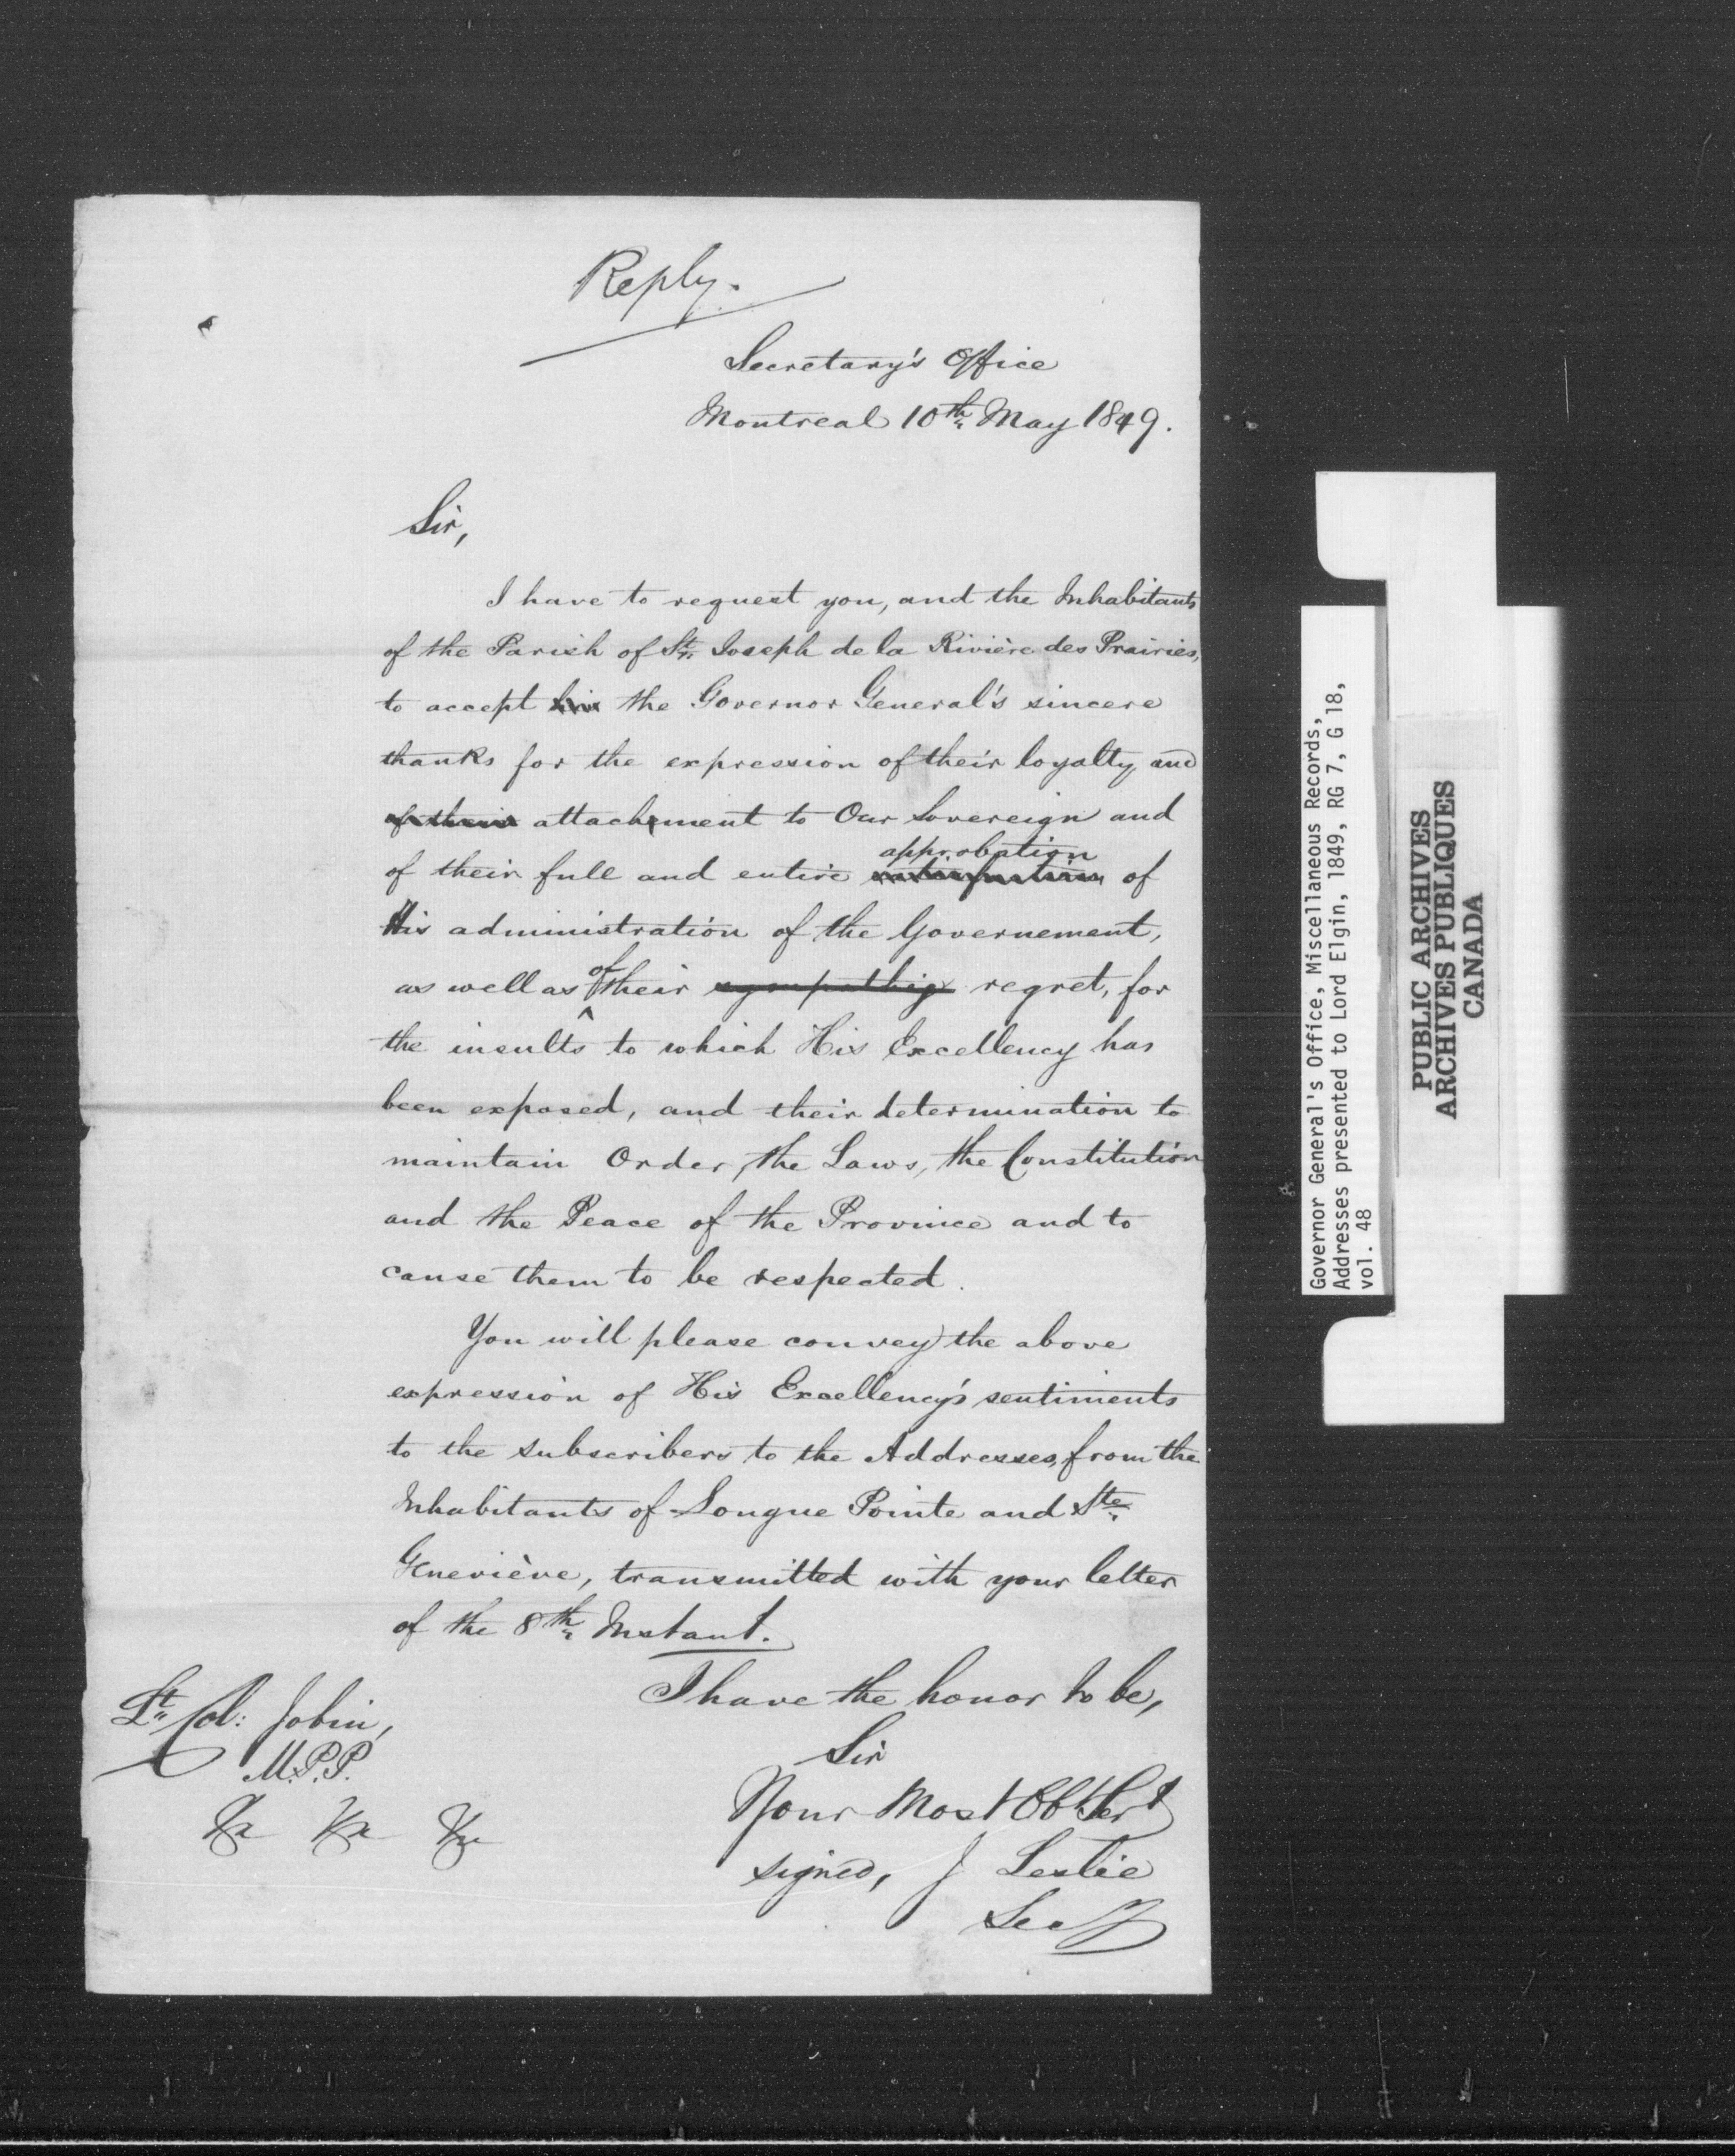 Reply.
Secretary's Office
Montreal 10th May 1849.
Sir,
I have to request you, and the Inhabitants
of the Parish of St. Joseph de la Rivière des Prairies,
to accept his the Governor General's sincere
thanks for the expression of their loyalty and
of their attachment to Our Sovereign and
approbation
of their full and entire satisfaction of
His administration of the Governement,
as well as of their sympathy regret, for
the insults to which His Excellency has
been exposed, and their determination to
maintain Order, the Laws, the Constitution
and the Peace of the Province and to
cause them to be respected.
You will please convey the above
expression of His Excellency's sentiments
to the subscribers to the Addresses, from the
Inhabitants of Longue Pointe and Ste.
Geneviève, transmitted with your letter
of the 8th Instant.
I have the honor to be,
Sir
Your Most Obt Sert
signed, J Leslie
Secy
Lt Col: Jobin,
M.P.P.
&c &c &c
Governor General's Office, Miscellaneous Records,
Addresses presented to Lord Elgin, 1849, RG 7, G 18,
vol. 48
PUBLIC ARCHIVES
ARCHIVES PUBLIQUES
CANADA